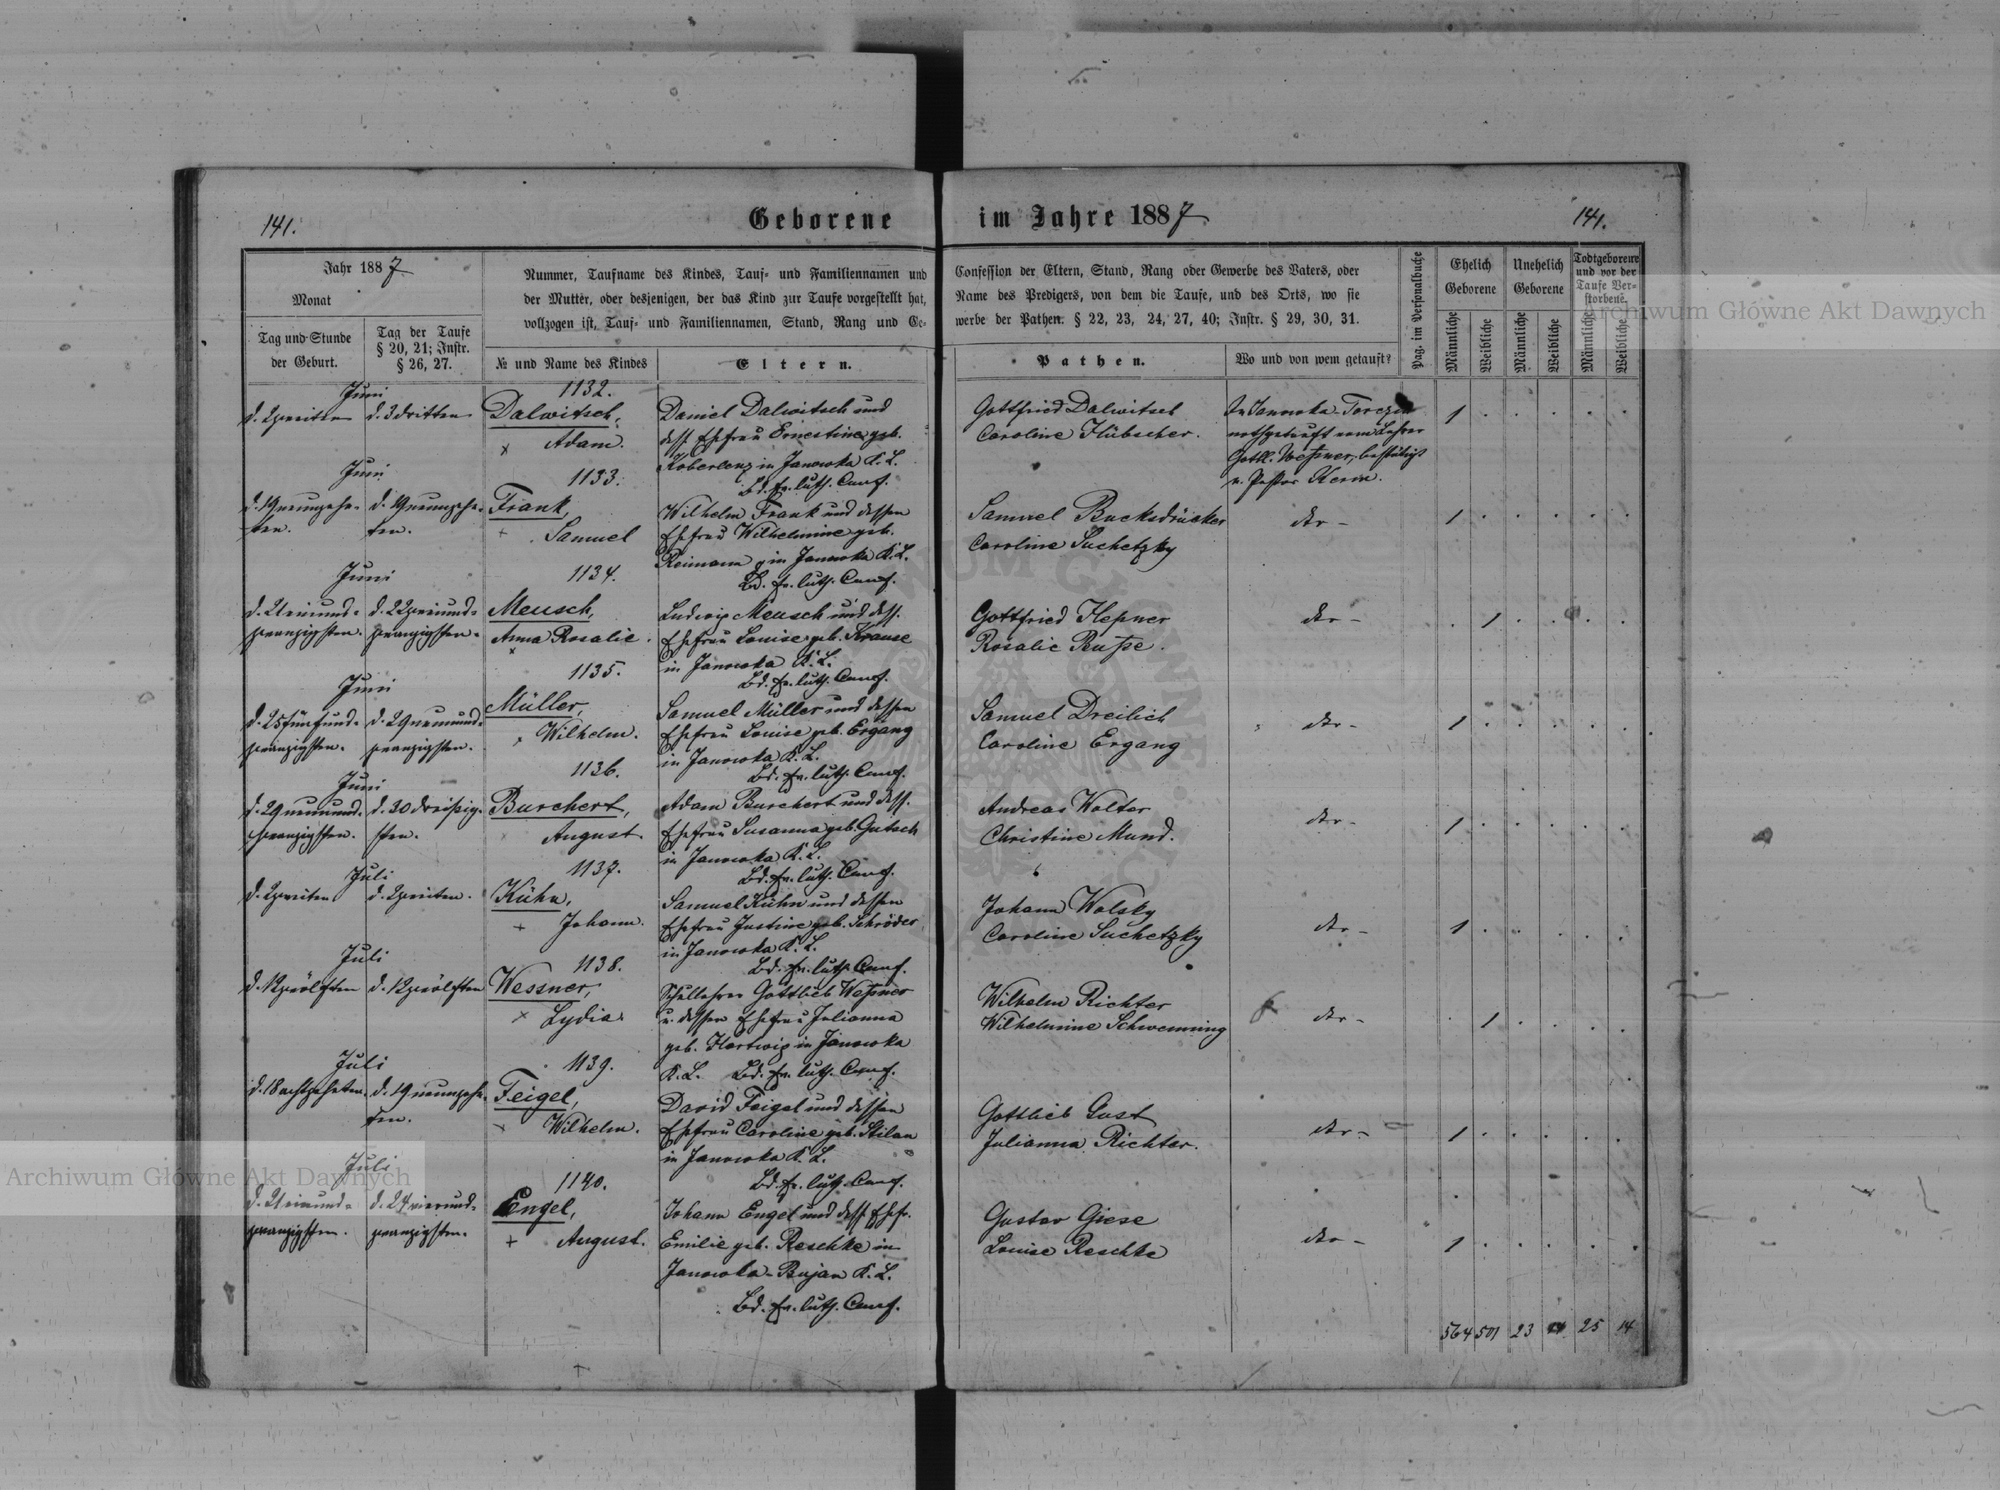 141.
Geborene im Jahre 1887
141.
Jahr 1887
Monat
Tag und Stunde
der Geburt.
Tag der Taufe
§ 20, 21; Instr.
§ 26, 27.
Nummer, Taufname des Kindes, Tauf= und Familiennamen und
der Mutter, oder desjenigen, der das Kind zur Taufe vorgestellt hat,
vollzogen ist, Tauf= und Familiennamen, Stand, Rang und Ge=
№ und Name des Kindes
Eltern.
Confession der Eltern, Stand, Rang oder Gewerbe des Vaters, oder
Name des Predigers, von dem die Taufe, und des Orts, wo sie
werbe der Pathen. § 22, 23, 24, 27, 40; Instr. § 29, 30, 31.
Pathen.
Wo und von wem getauft?
Pag. im Personalbuche
Ehelich
Geborene
Unehelich
Geborene
Todtgeborene
und vor der
Taufe Ver=
storbene.
Männliche
Weibliche
Männliche
Weibliche
Männliche
Weibliche
Juni
d. 2zweiten
d. 3dritten
1132.
Dalwitsch,
Adam.
Daniel Dalwitsch und
dess. Ehefrau Ernestine geb.
Koberlenz in Janowka K. L.
Bd. Ev. luth. Conf.
Gottfried Dalwitsch
Caroline Hübscher.
In Janowka-
nothgetauft vom Lehrer
Gottl. Weßner, bestätigt
v. Pastor Kerm.
1
Juni
d. 19neunzehn-
ten.
d. 19neunzehn-
ten.
1133.
Frank,
Samuel
Wilhelm Frank und dessen
Ehefrau Wilhelmine geb.
Reimann in Janowka K. L.
Bd. Ev. luth. Conf.
Samuel Bucksdrücker
Caroline Suchetzky
dto -
1
Juni
d. 21einund-
zwanzigsten.
d. 22zweiund-
zwanzigsten.
1134.
Meusch,
Anna Rosalie.
Ludwig Meusch und dess.
Ehefrau Louise geb. Krause
in Janowka K. L.
Bd. Ev. luth. Conf.
Gottfried Hepner
Rosalie
dto -
1
Juni
d. 25fünfund-
zwanzigsten.
d. 29neunund-
zwanzigsten.
1135.
Müller,
Wilhelm.
Samuel Müller und dessen
Ehefrau Louise geb. Ergang
in Janowka K. L.
Bd. Ev. luth. Conf.
Samuel Dreilich
Caroline Ergang
dto -
1
Juni
d. 29neunund-
zwanzigsten.
d. 30dreißig-
sten.
1136.
Burchert,
August
Adam Burchert und dess.
Ehefrau Susanna geb. Gutsch
in Janowka K. L.
Bd. Ev. luth. Conf.
Andreas Wolter
Christine Mund.
dto -
1
Juli
d. 2zweiten
d. 2zweiten.
1137.
Kühn,
Johann.
Samuel Kühn und dessen
Ehefrau Justine geb. Schröder
in Janowka K. L.
Bd. Ev. luth. Conf.
Johann Wolsky
Caroline Suchetzky
dto -
1
Juli
d. 12zwölften
d. 12zwölften
1138.
Wessner,
Lydia.
Schullehrer Gottlieb Weßner
u. dessen Ehefrau Julianna
geb. Hartwig in Janowka
K. L. Bd. Ev. luth. Conf.
Wilhelm Richter
Wilhelmine Schwemming
dto -
1
Juli
d. 18achtzehnten.
d. 19neunzehn-
ten.
1139.
Feigel,
Wilhelm.
David Feigel und dessen
Ehefrau Caroline geb. Stilan
in Janowka K. L.
Bd. Ev. luth. Conf.
Gottlieb Gust
Julianna Richter.
dto -
1
Juli
d. 21einund-
zwanzigsten.
d. 24vierund-
zwanzigsten.
1140.
Engel,
August.
Johann Engel und dess. Ehefr.
Emilie geb. Reschke in
Janowka-Bujan K. L.
Bd. Ev. luth. Conf.
Gustav Giese
Louise Reschke
dto -
1
564 501 23 25 14
Archiwum Główne Akt Dawnych
Archiwum Główne Akt Dawnych